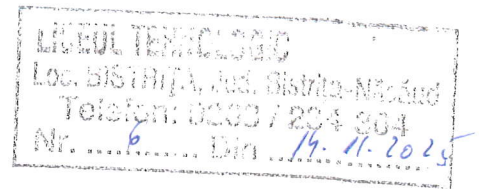 LICEUL TEHNOLOGIC
Loc. BISTRIȚA, Jud. Bistrița-Năsăud
Telefon: / 234
Nr. 6 Din 14. 11. 2025